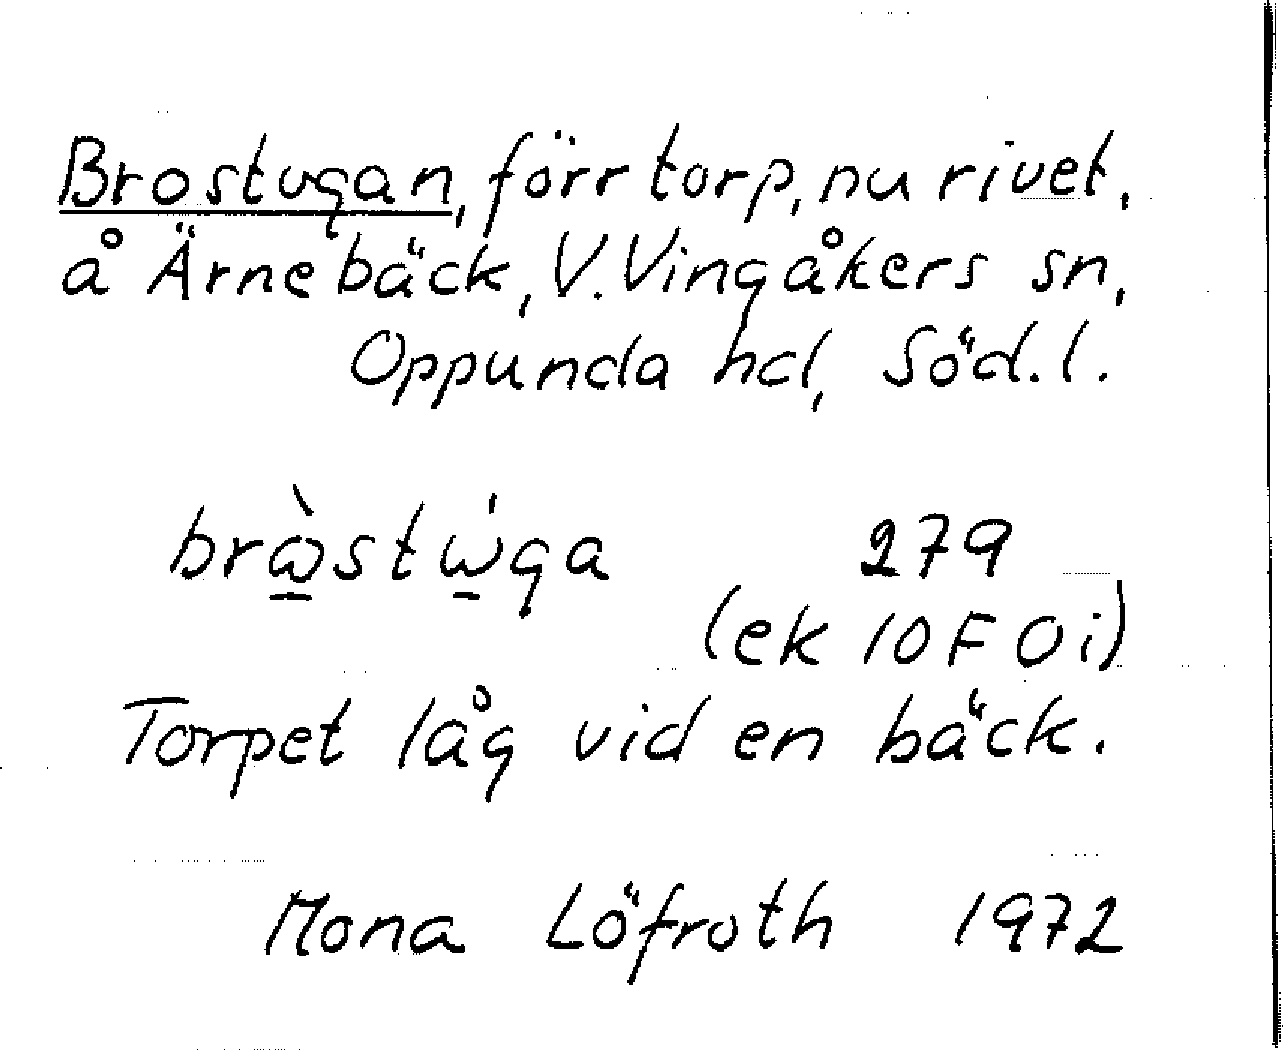 Brostugan, förr torp, nu rivet,
å Ärnebäck, V. Vingåkers sn,
Oppunda hd, Söd. l.
279
(ek 10F 0i)
Torpet låg vid en bäck.
Mona Löfroth 1972